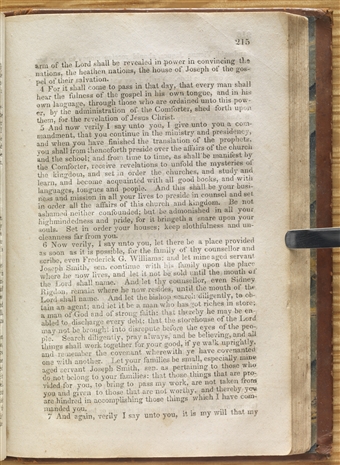 215
arm of the Lord shall be revealed in power in convincing the
nations, the heathen nations, the house of Joseph of the gos-
pel of their salvation.
4 For it shall come to pass in that day, that every man shall
hear the fulness of the gospel in his own tongue, and in his
own language, through those who are ordained unto this pow-
er, by the administration of the Comforter, shed forth upon
them, for the revelation of Jesus Christ.
5 And now verily I say unto you, I give unto you a com-
mandment, that you continue in the ministry and presidency,
and when you have finished the translation of the prophets,
you shall from thenceforth preside over the affairs of the church
and the school; and from time to time, as shall be manifest by
the Comforter, receive revelations to unfold the mysteries of
the kingdom, and set in order the churches, and study and
learn, and become acquainted with all good books, and with
languages, tongues and people. And this shall be your busi-
ness and mission in all your lives to preside in counsel and set
in order all the affairs of this church and kingdom. Be not
ashamed neither confounded; but be admonished in all your
highmindedness and pride, for it bringeth a snare upon your
souls. Set in order your houses; keep slothfulness and un-
cleanness far from you.
6 Now verily, I say unto you, let there be a place provided
as soon as it is possible, for the family of thy counsellor and
scribe, even Frederick G. Williams: and let mine aged servant
Joseph Smith, sen. continue with his family upon the place
where he now lives, and let it not be sold until the mouth of
the Lord shall name. And let thy counsellor, even Sidney
Rigdon, remain where he now resides, until the mouth of the
Lord shall name. And let the bishop search diligently, to ob-
tain an agent; and let it be a man who has got riches in store,
a man of God and of strong faith; that thereby he may be en-
abled to discharge every debt; that the storehouse of the Lord
may not be brought into disrepute before the eyes of the peo-
ple. Search diligently, pray always, and be believing, and all
things shall work together for your good, if ye walk uprightly,
and remember the covenant wherewith ye have covenanted
one with another. Let your families be small, especially mine
aged servant Joseph Smith, sen. as pertaining to those who
do not belong to your families: that those things that are pro-
vided for you, to bring to pass my work, are not taken from
you and given to those that are not worthy, and thereby you
are hindred in accomplishing those things which I have com-
manded you.
7 And again, verily I say unto you, it is my will that my